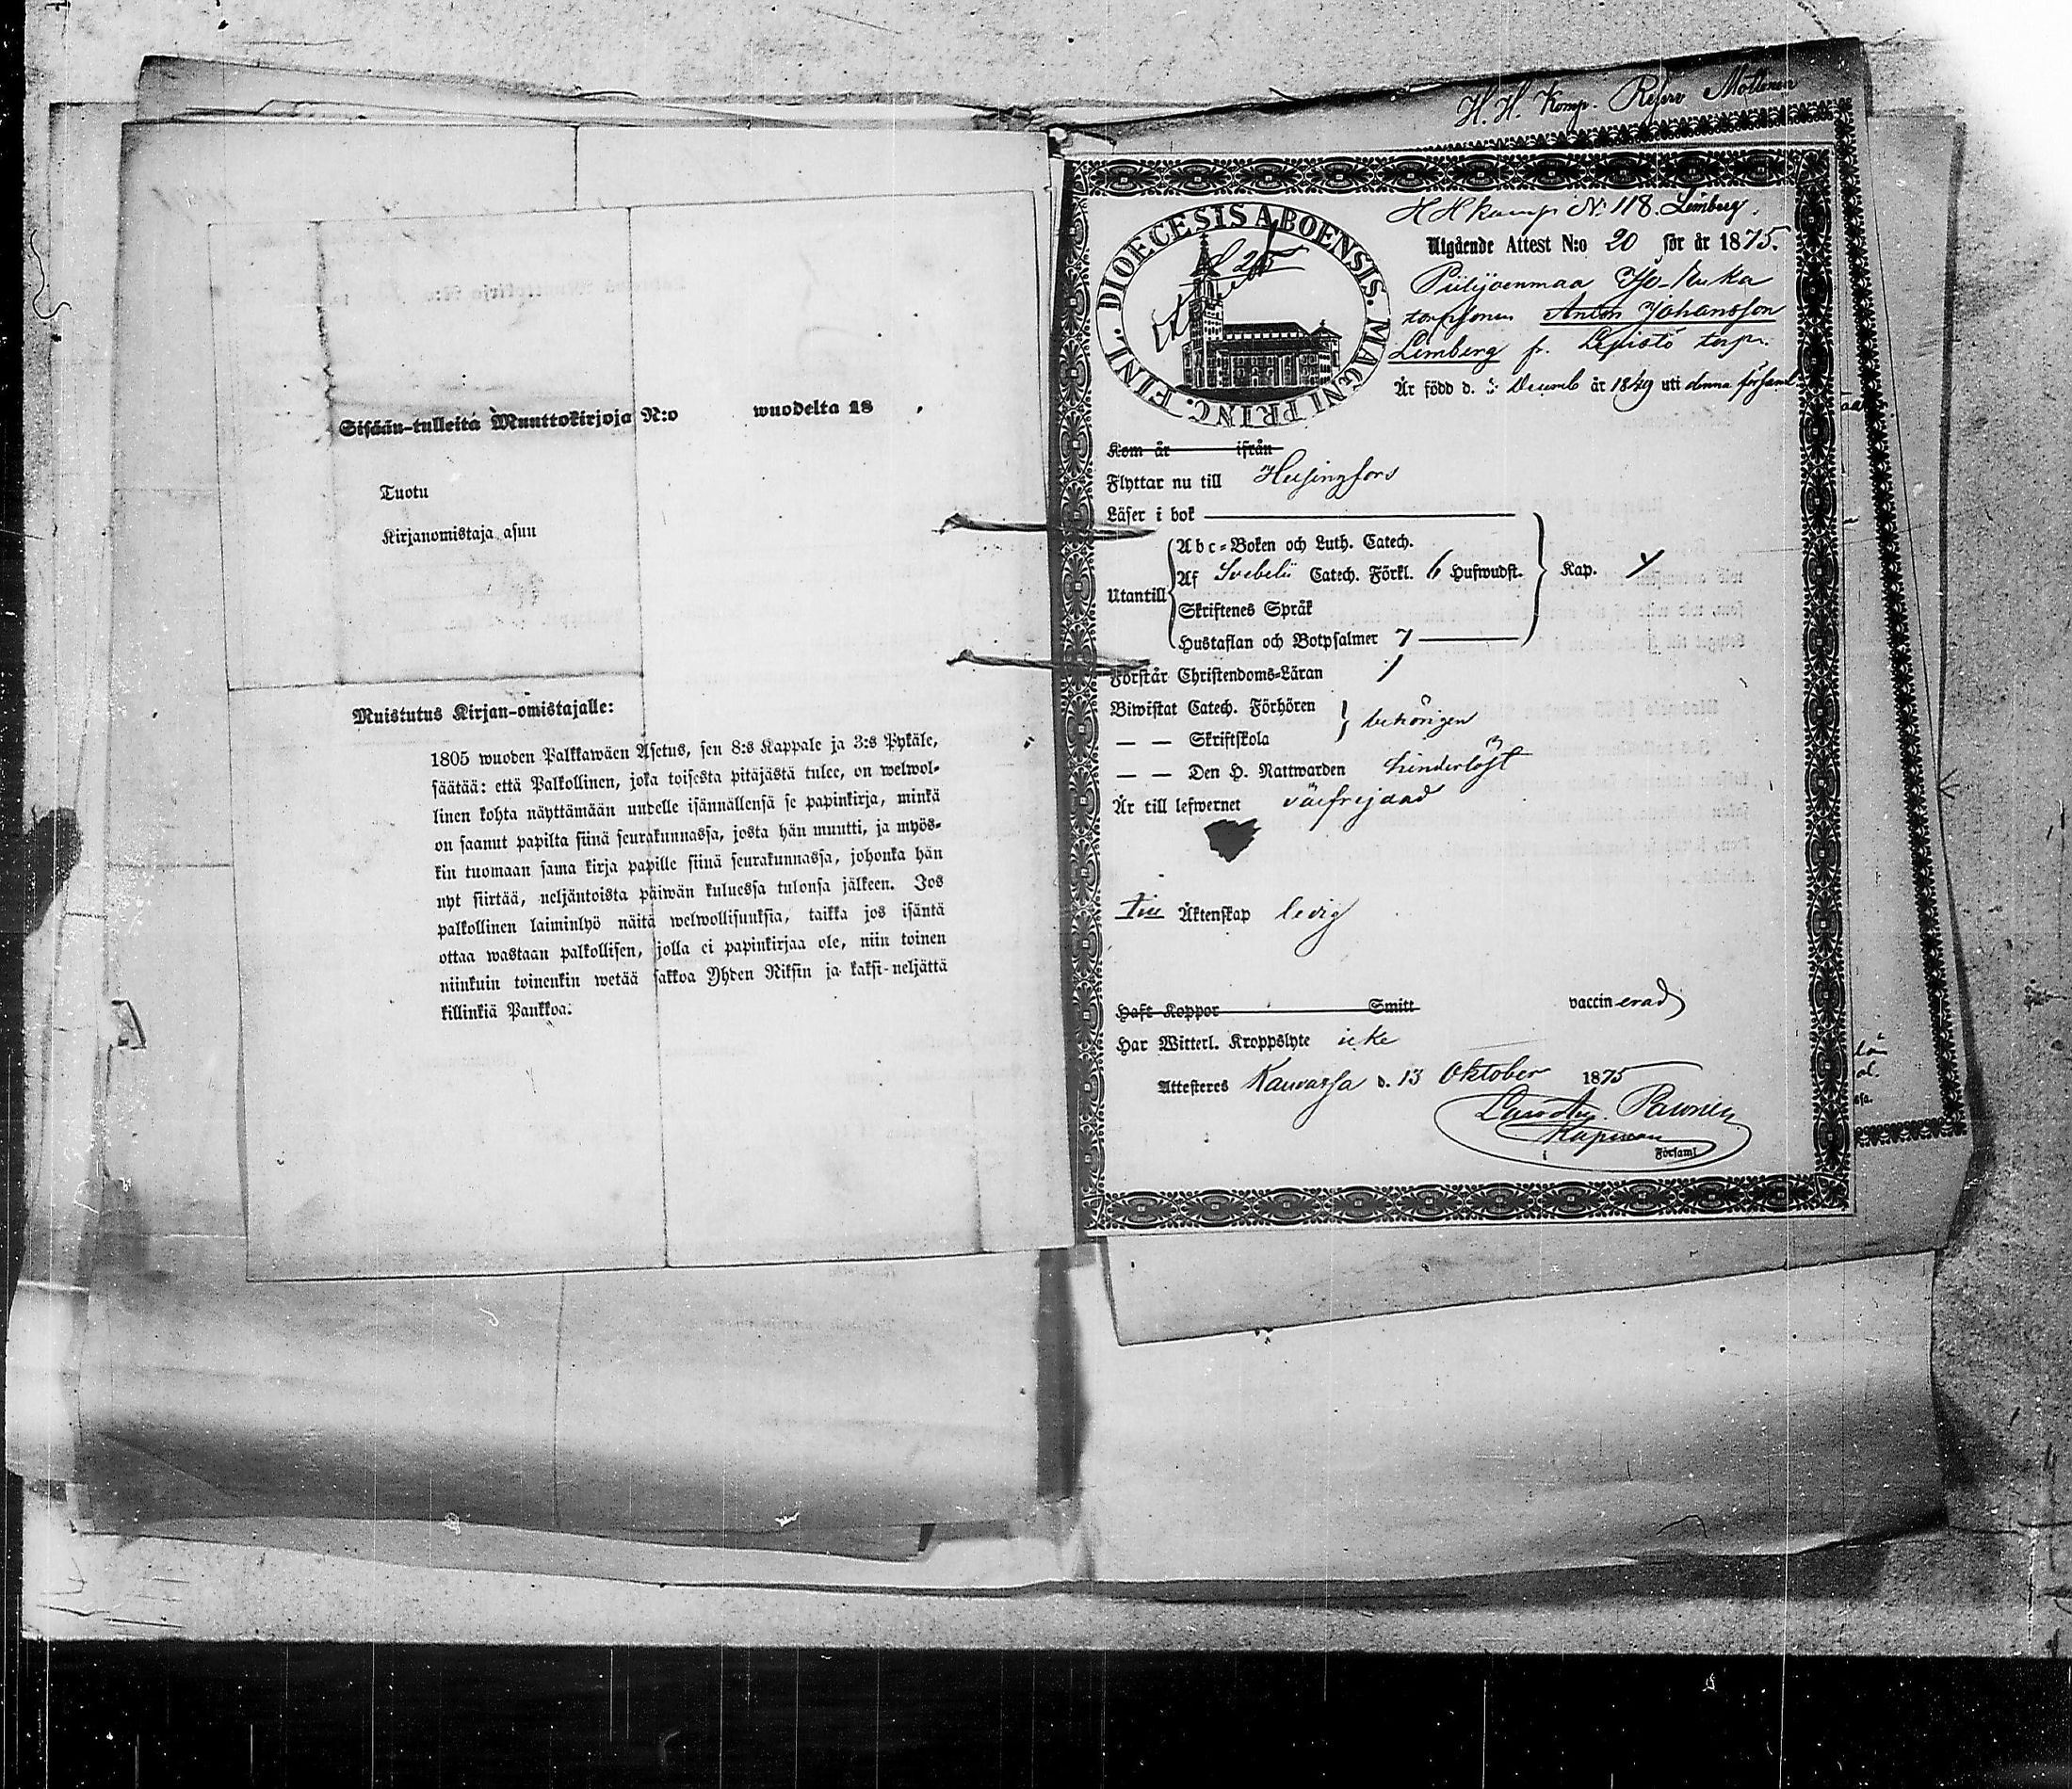 Sisään-tulleita Muuttokirjoja N:o wuodelta 18 .
Tuotu
Kirjanomistaja asuu
Muistutus Kirjan-omistajalle:
1805 wuoden Palkkawäen Asetus, sen 8:s Kappale ja 3:s Pykäle,
säätää: että Palkollinen, joka toisesta pitäjästä tulee, on welwol-
linen kohta näyttämään uudelle isännällensä se papinkirja, minkä
on saanut papilta siinä seurakunnassa, josta hän muutti, ja myös-
kin tuomaan sama kirja papille siinä seurakunnassa, johonka hän
nyt siirtää, neljäntoista päiwän kuluessa tulonsa jälkeen. Jos
palkollinen laiminlyö näitä welwollisuuksia, taikka jos isäntä
ottaa wastaan palkollisen, jolla ei papinkirjaa ole, niin toinen
niinkuin toinenkin wetää sakkoa Yhden Riksin ja kaksi-neljättä
killinkiä Pankkoa.
H. H. Komp. Reserv Mottonen
H H komp N: 118. Limberg.
DIOECESIS ABOENSIS. MAGNI PRINC. FINL.
Utgående Attest N:o 20 för år 1875.
Piilijoenmaa
Anton Johansson
Limberg fr. Lepistö torp.
Är född d. Decemb år 1849 uti denna församl.
Kom år ifrån
Flyttar nu till Helsingfors
Läser i bok
Abc-Boken och Luth. Catech.
Utantill Af Svebelii Catech. Förkl. 6 Hufwudst. Kap.
Skriftenes Språk
Hustaflan och Botpsalmer 7
Förstår Christendoms-Läran
Biwistat Catech. Förhören behörigen
— — Skriftskola
— — Den H. Nattwarden hinderlöst
Är till lefwernet välfrejdad
Till Äktenskap ledig
Haft Koppor Smitt vaccinerad
Har Witterl. Kroppslyte icke
Attesteres Kauvatsa d. 13 Oktober 1875
Kapellan
i Församl